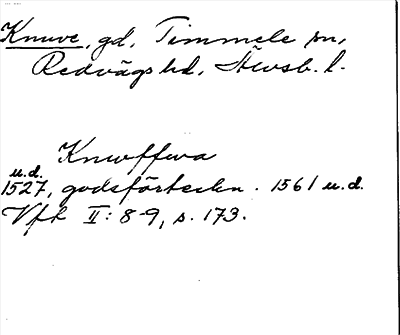 Knuve, gd, Timmele sn,
Redvägs hd, Älvsb. l.
Knwffwa
u.d.
1527, godsförteckn. 1561 u.d.
Vfh II: 8-9, s. 173.